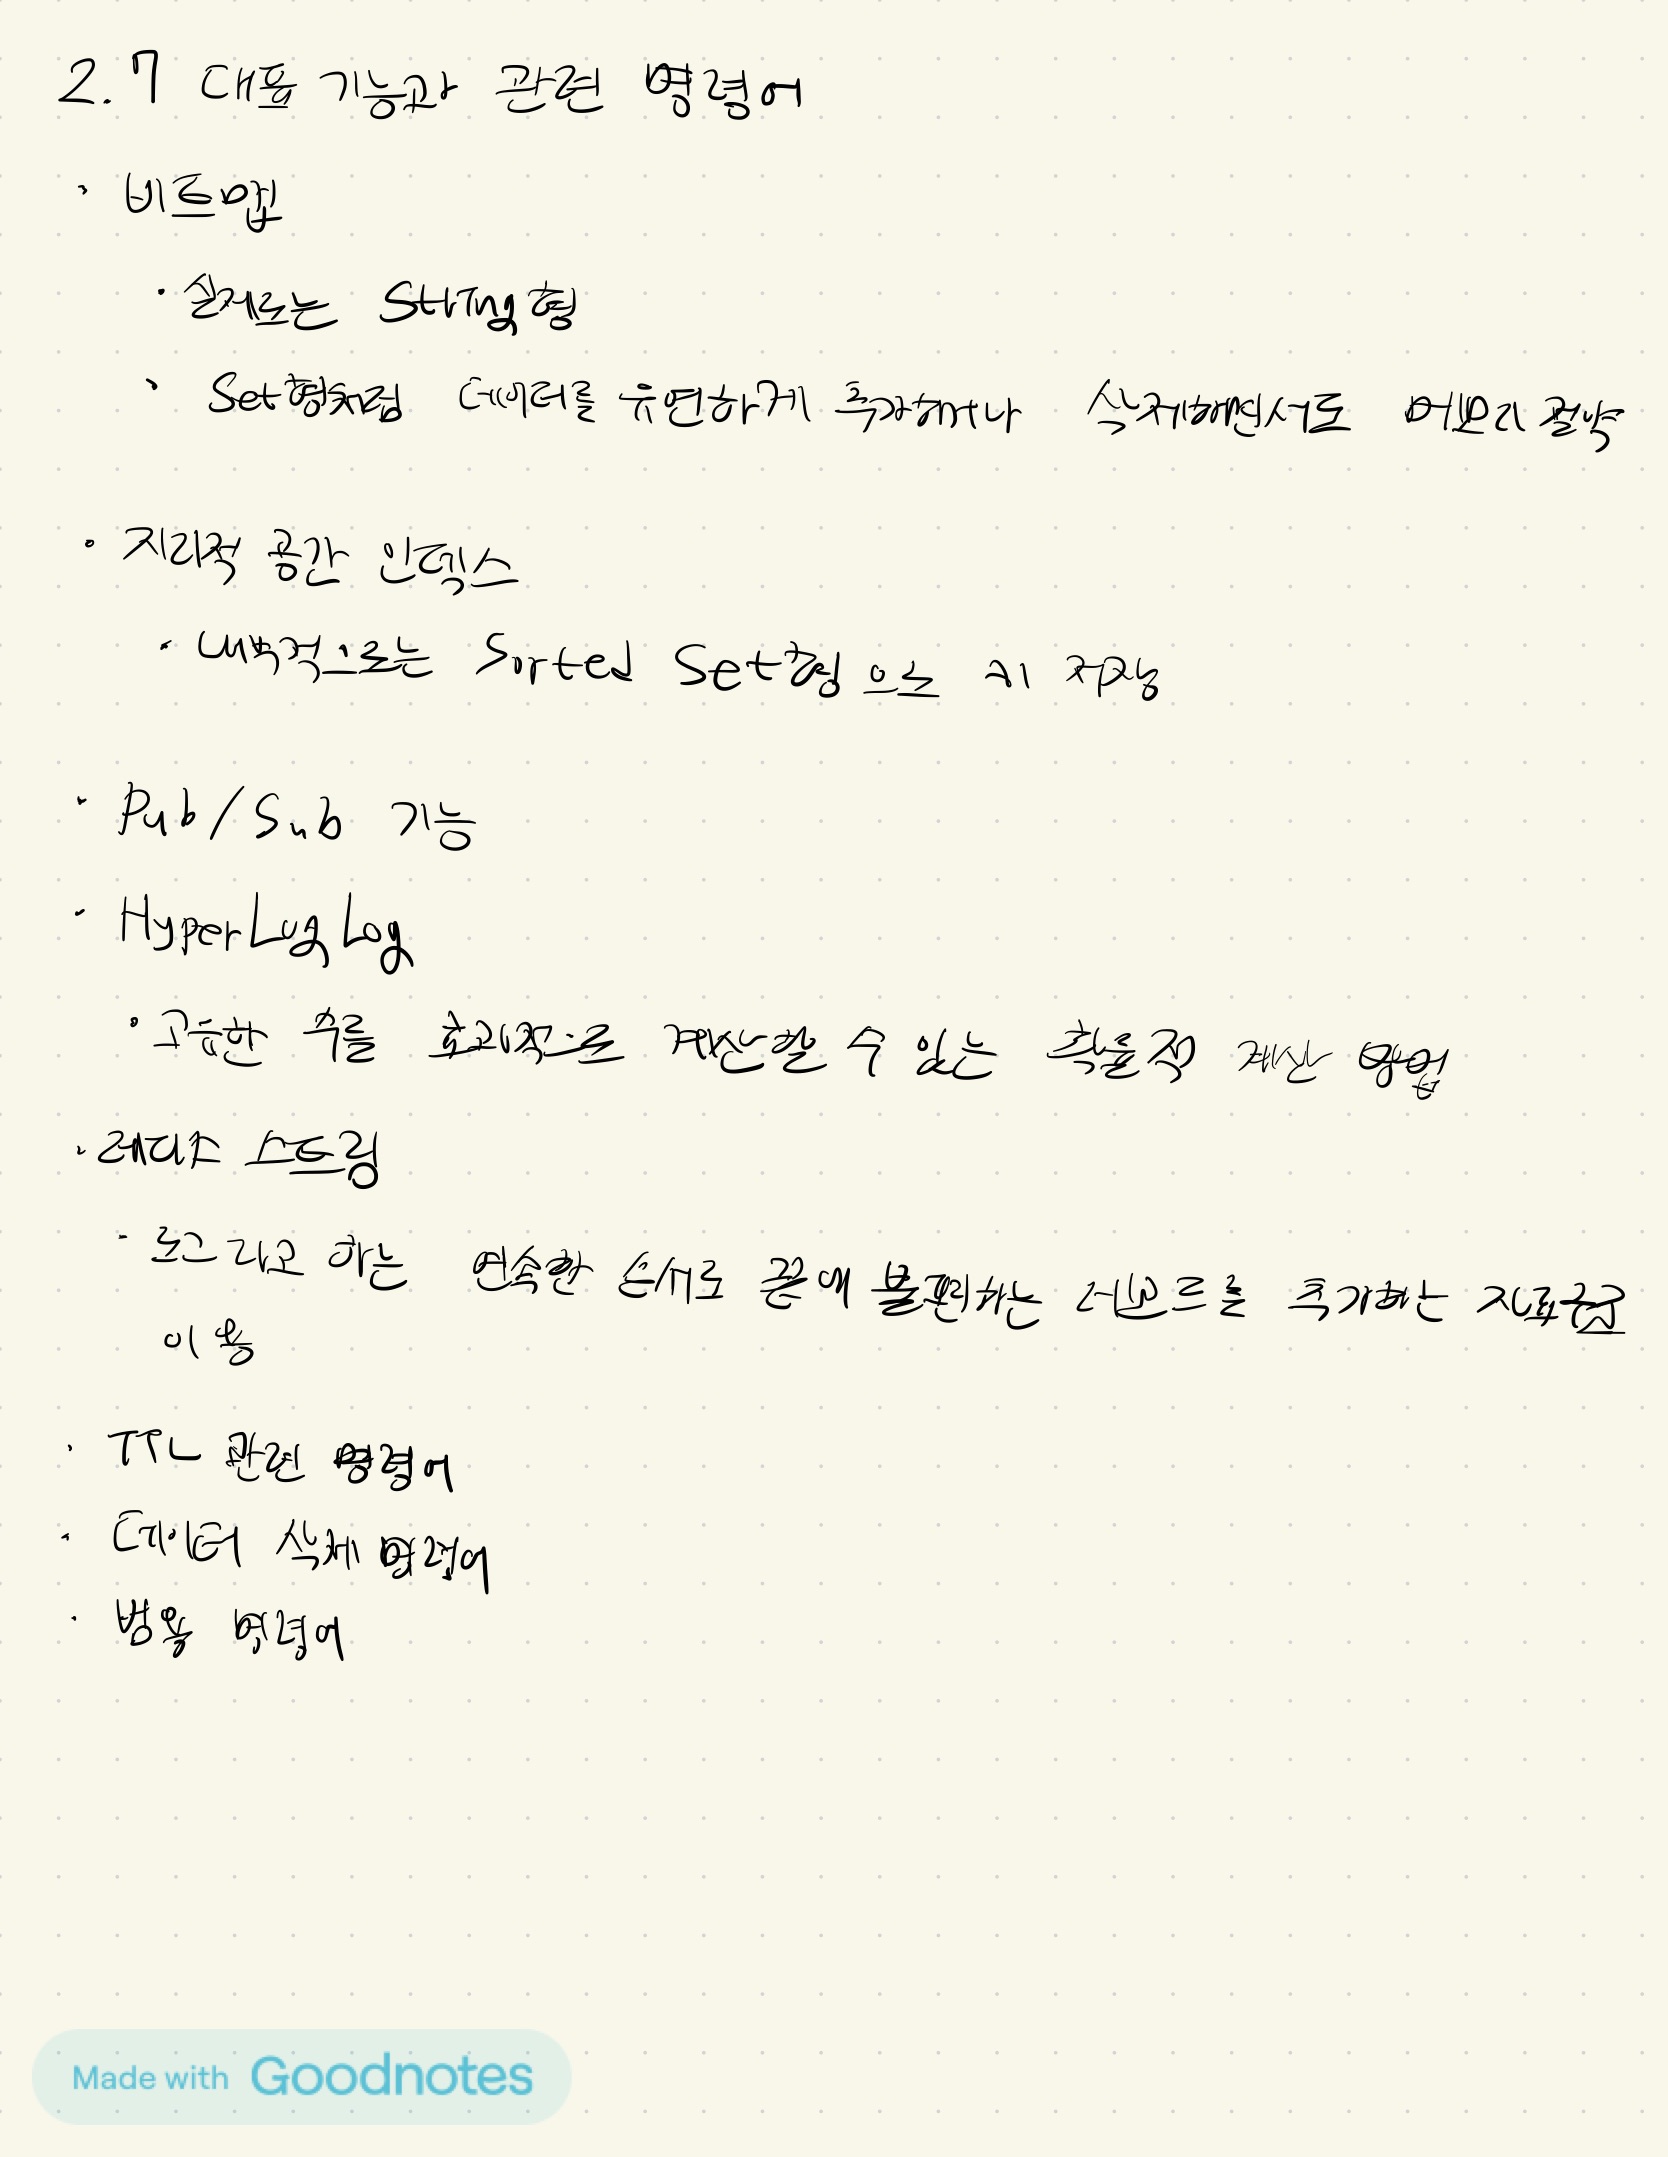 2.7 대표 기능과 관련 명령어
· 비트맵
· 실제로는 String형
· Set형처럼 데이터를 유연하게 추가하거나 삭제하면서도 메모리 절약
· 지리적 공간 인덱스
· 내부적으로는 Sorted Set형으로 저장
· Pub/Sub 기능
· HyperLogLog
· 고유한 수를 효과적으로 계산할 수 있는 확률적 계산 방법
· 레디스 스트림
· 로그라고 하는 연속한 순서로 끝에 불변하는 레코드를 추가하는 자료구조
이용
· TTL 관련 명령어
· 데이터 삭제 명령어
· 범용 명령어
Made with Goodnotes